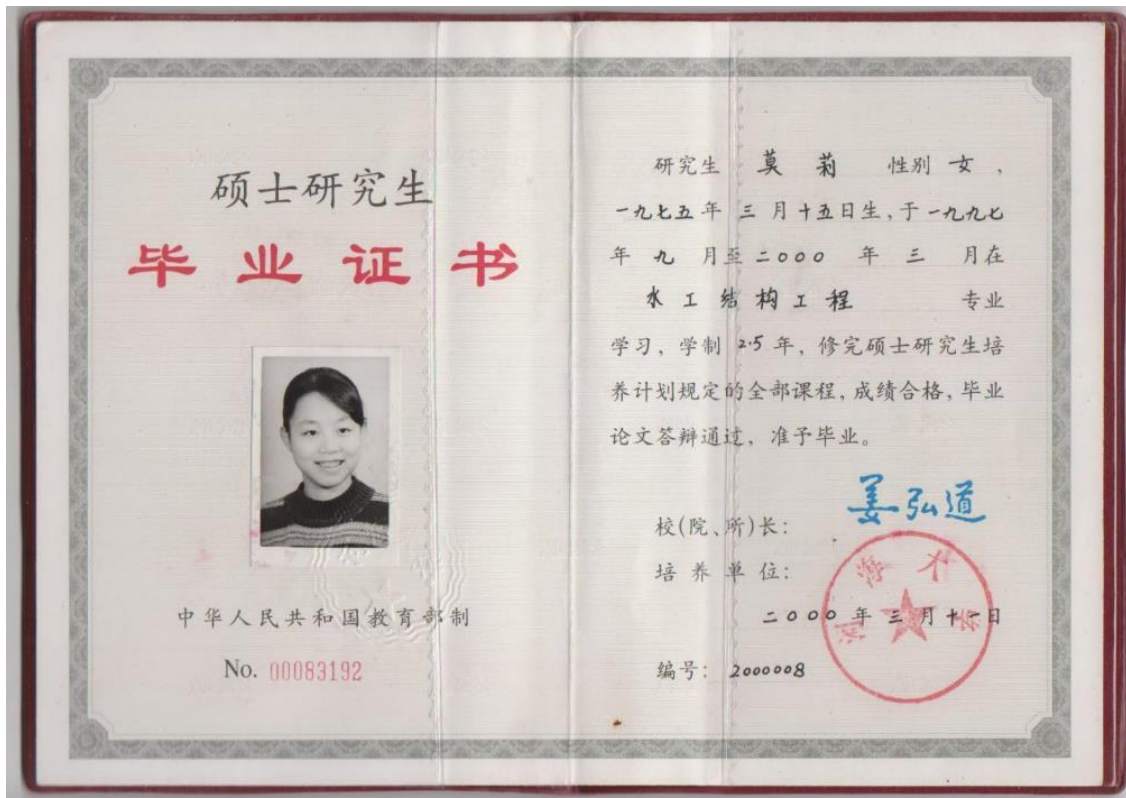 硕士研究生
毕业证书
中华人民共和国教育部制
No. 00083192
研究生 莫 莉 性别 女，
一九七五年 三 月十五日生，于一九九七
年 九 月至二〇〇〇 年 三 月在
水工结构工程 专业
学习，学制 2.5 年，修完硕士研究生培
养计划规定的全部课程，成绩合格，毕业
论文答辩通过，准予毕业。
姜弘道
校(院、所)长：
培 养 单 位：
河海大学
二〇〇〇 年 三 月十一日
编号：2000008